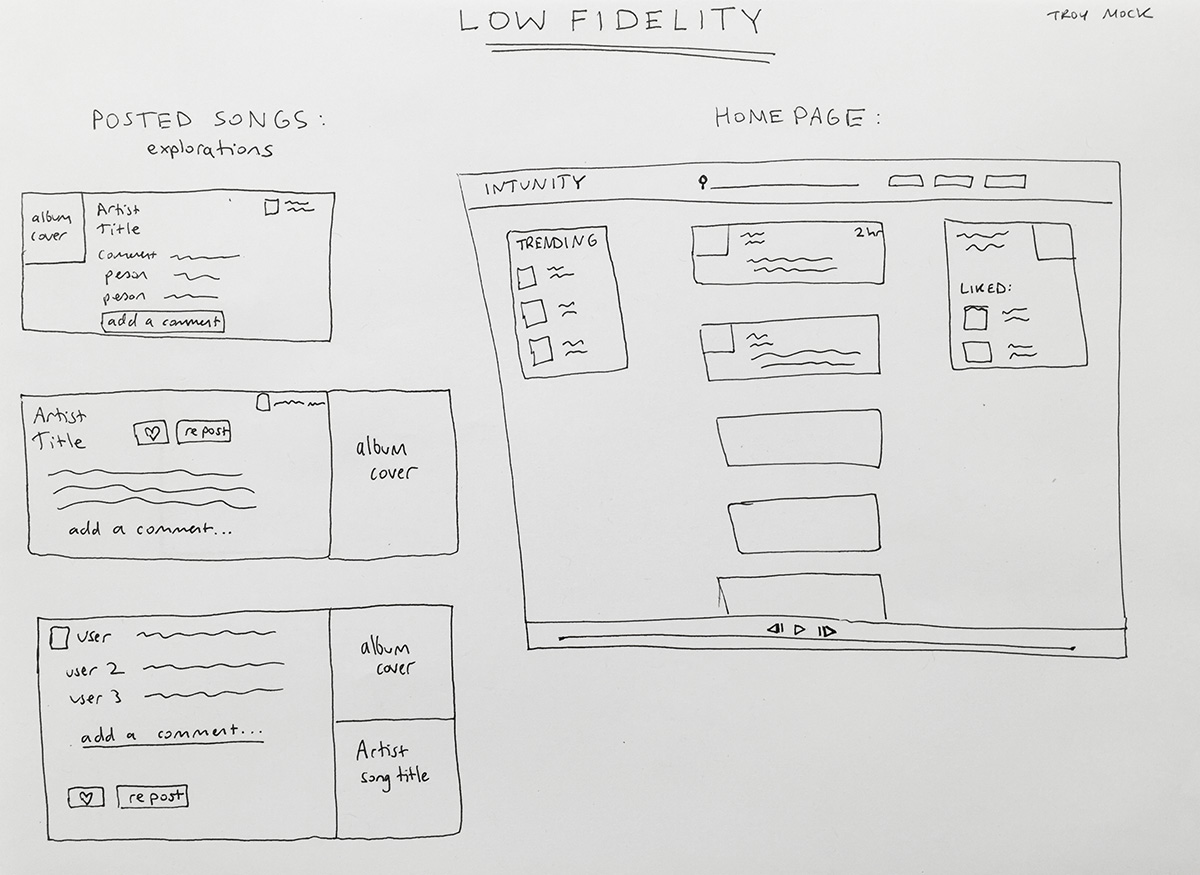 LOW FIDELITY
TROY MOCK
POSTED SONGS:
explorations
album
cover
Artist
Title
comment
person
person
add a comment
Artist
Title
repost
album
cover
add a comment...
user
user 2
user 3
add a comment...
repost
album
cover
Artist
song title
HOMEPAGE:
INTUNITY
TRENDING
2hr
LIKED: